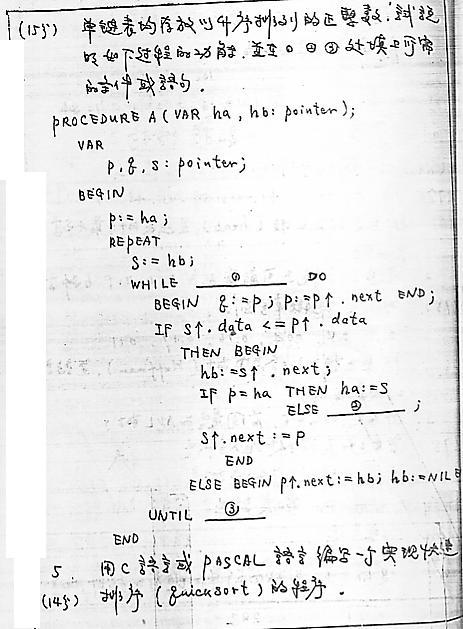 (15分) 单链表均存放以升序排列的正整数,试说
明如下过程的功能,并在①②③处填上可需
的条件或語句.
PROCEDURE A(VAR ha, hb: pointer);
VAR
p, q, s: pointer;
BEGIN
p:= ha;
REPEAT
s:= hb;
WHILE ① DO
BEGIN q:=p; p:=p↑.next END;
IF s↑.data <= p↑.data
THEN BEGIN
hb:=s↑.next;
IF p=ha THEN ha:=s
ELSE ② ;
s↑.next:=p
END
ELSE BEGIN p↑.next:=hb; hb:=NIL E
UNTIL ③
END
5. 用C語言或PASCAL語言编写一个实现快速
(14分) 排序(quicksort)的程序.